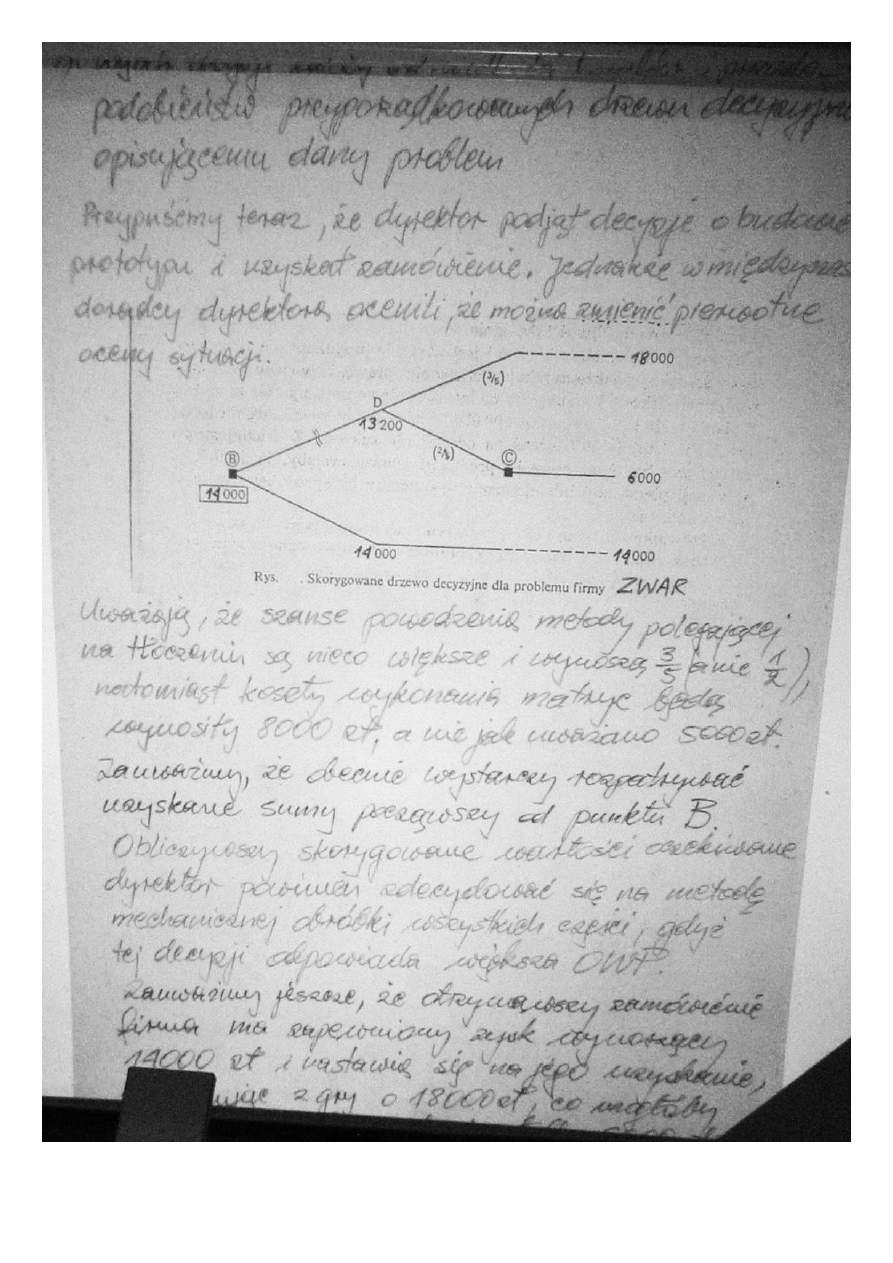 podobieństw przyporządkowanych drzewu decyzyjne
opisującemu dany problem
Przypuśćmy teraz, że dyrektor podjął decyzję o budowie
prototypu i uzyskał zamówienie. Jednakże w międzyczas
doradcy dyrektora ocenili, że można zmienić pierwotne
oceny sytuacji.
18000
(3/5)
D
13200
(2/5)
B
C
6000
14000
14000
14000
Rys. . Skorygowane drzewo decyzyjne dla problemu firmy ZWAR
Uważają, że szanse powodzenia metody polegającej
na tłoczeniu są nieco większe i wynoszą 3/5 a nie 1/2),
natomiast koszty wykonania matryc będą
wynosiły 8000 zł, a nie jak uważano 5000 zł.
Zauważmy, że obecnie wystarczy rozpatrywać
uzyskane sumy począwszy od punktu B.
Obliczywszy skorygowane wartości oczekiwane
dyrektor powinien zdecydować się na metodę
mechanicznej obróbki wszystkich części, gdyż
tej decyzji odpowiada większa OWP.
Zauważmy jeszcze, że otrzymawszy zamówienie
firma ma zapewniony zysk wynoszący
14000 zł i nastawia się na jego uzyskanie,
z gry o 18000 zł, co mogłoby